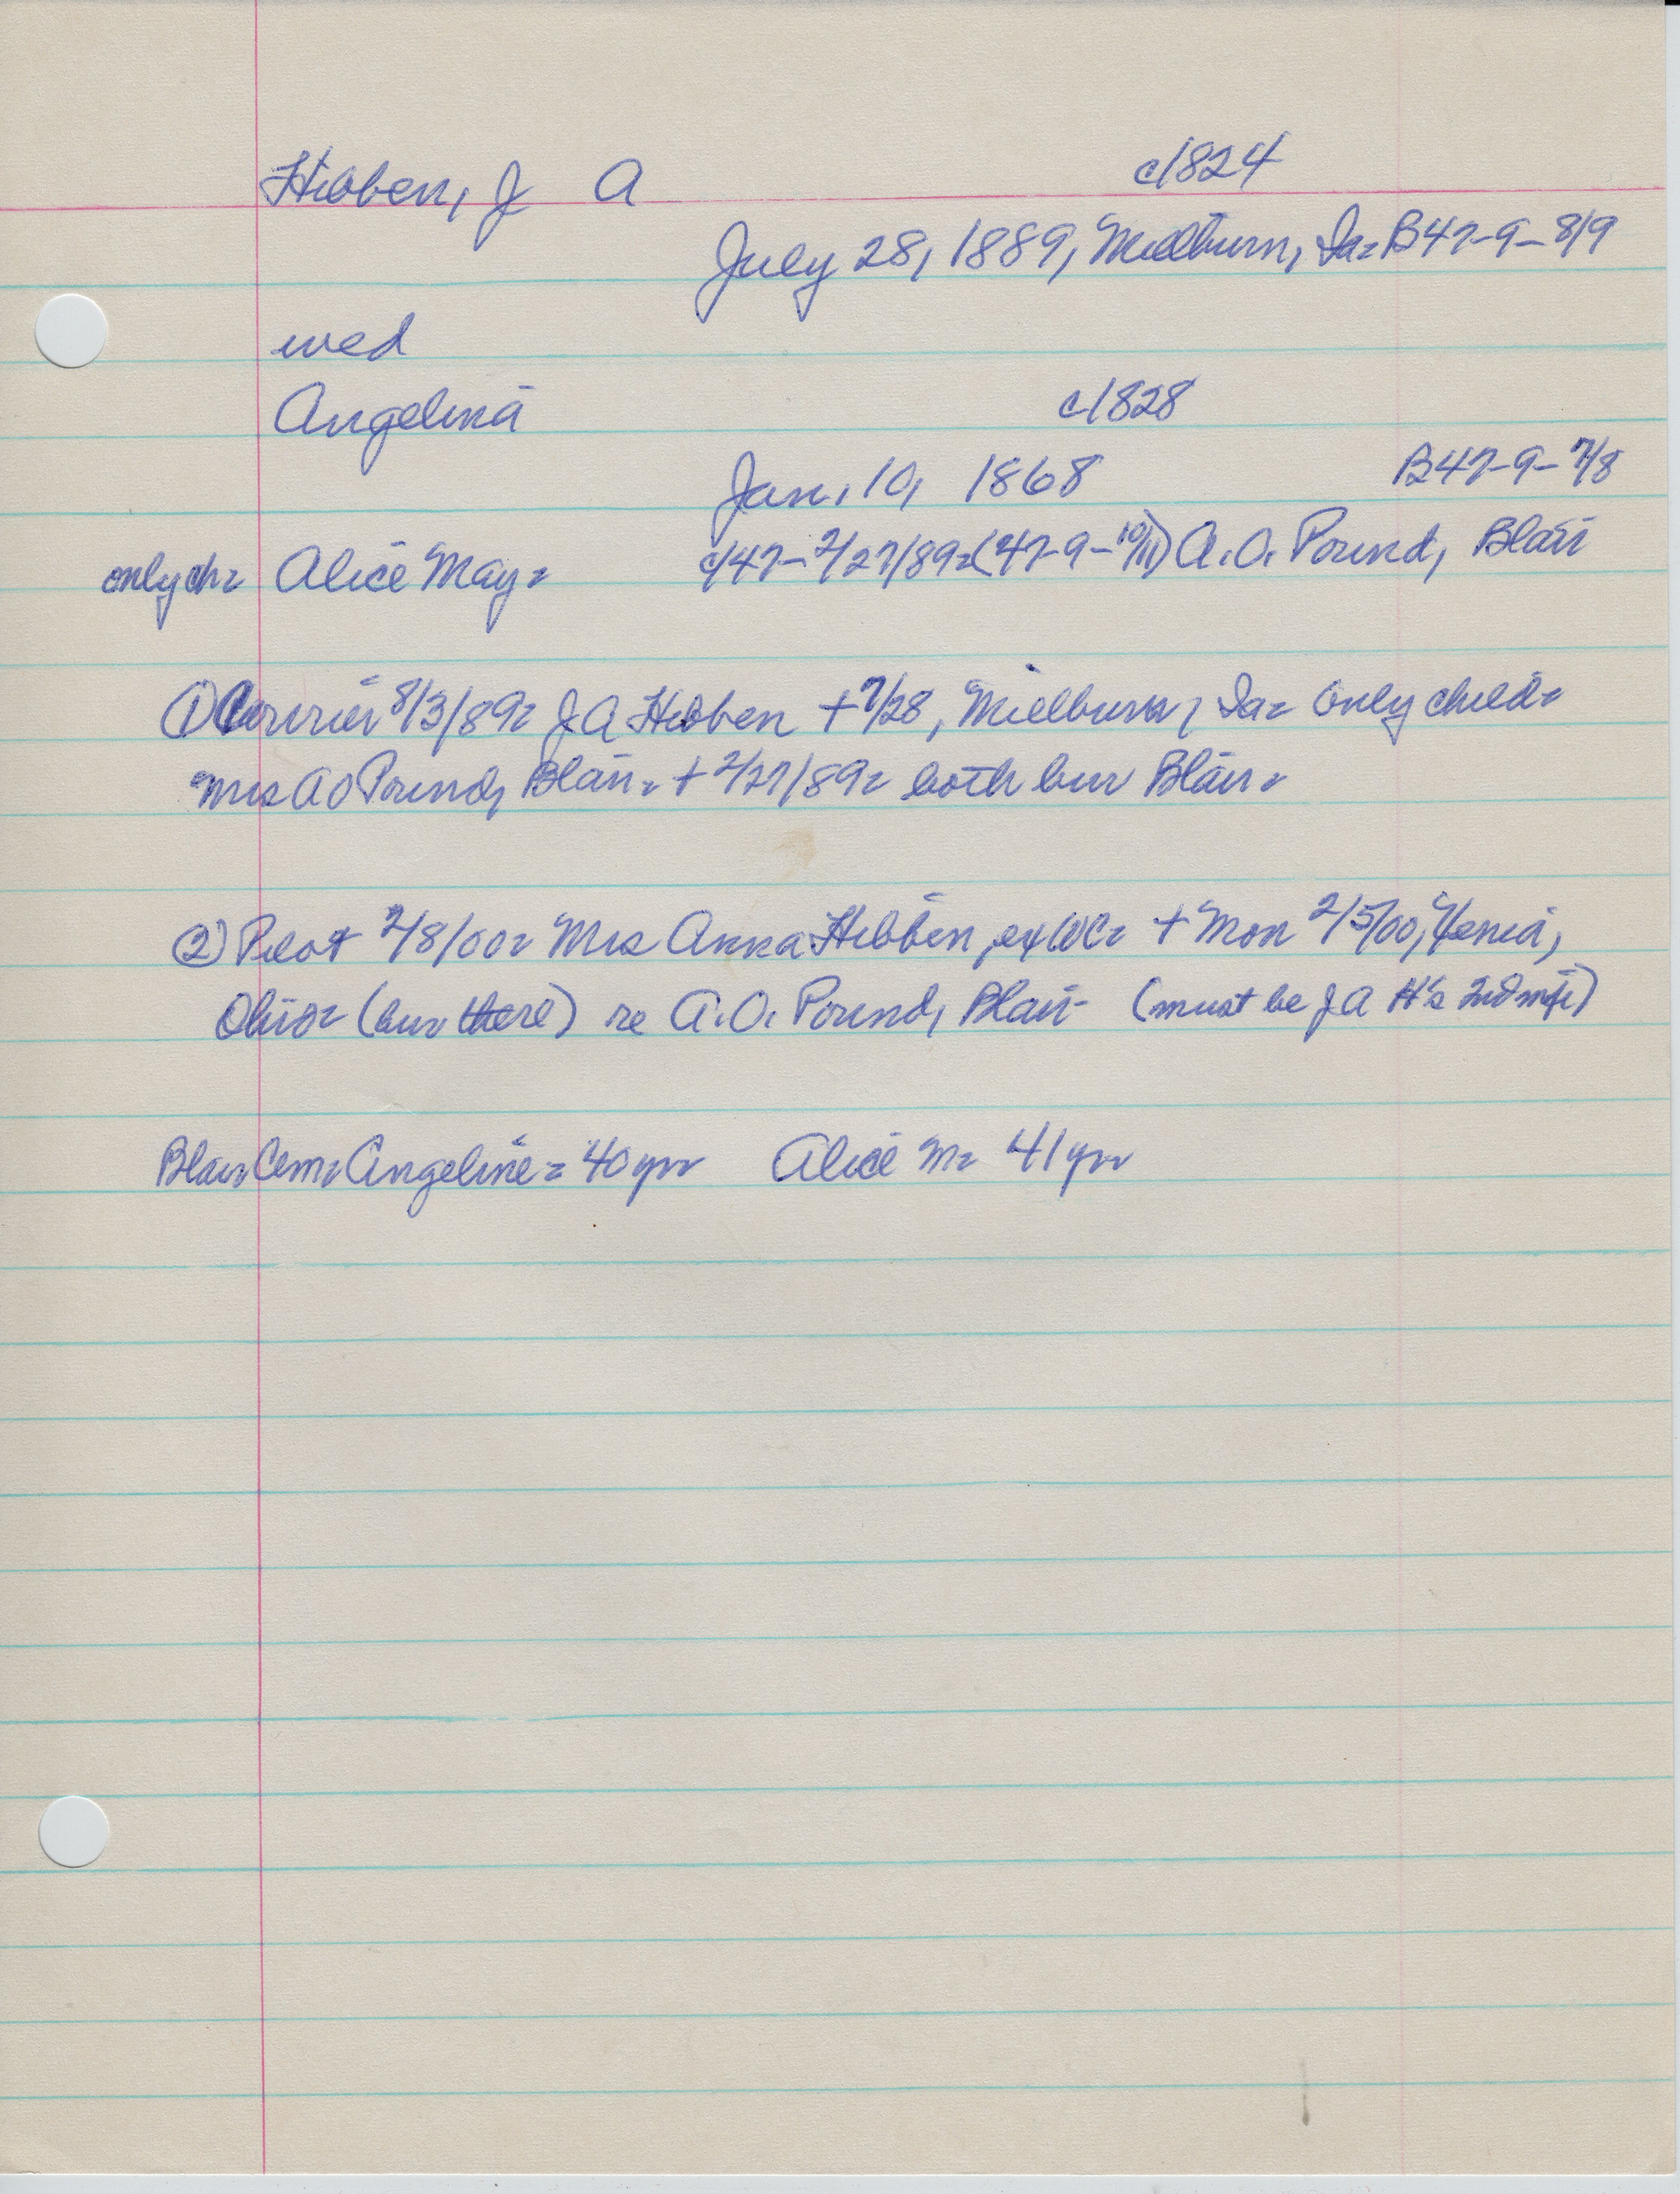 Hibben, J A c1824
July 28, 1889, Millburn, Ia= B47-9-8/9
wed
Angelina c1828
Jan. 10, 1868 B47-9-7/8
only ch= Alice May= c/47-2/27/89=(47-9-10/11) A.O. Pound, Blair
① Courier 8/3/89= J A Hibben +7/28, Millburn, Ia= only child=
Mrs A O Pound, Blair= +2/27/89= both bur Blair=
② Pilot 2/8/00= Mrs Anna Hibben, ex WC= + Mon 2/5/00, Xenia,
Ohio= (bur there) re A.O. Pound, Blair- (must be J A H's 2nd wife)
Blair Cem= Angeline= 40 yrs Alice M= 41 yrs